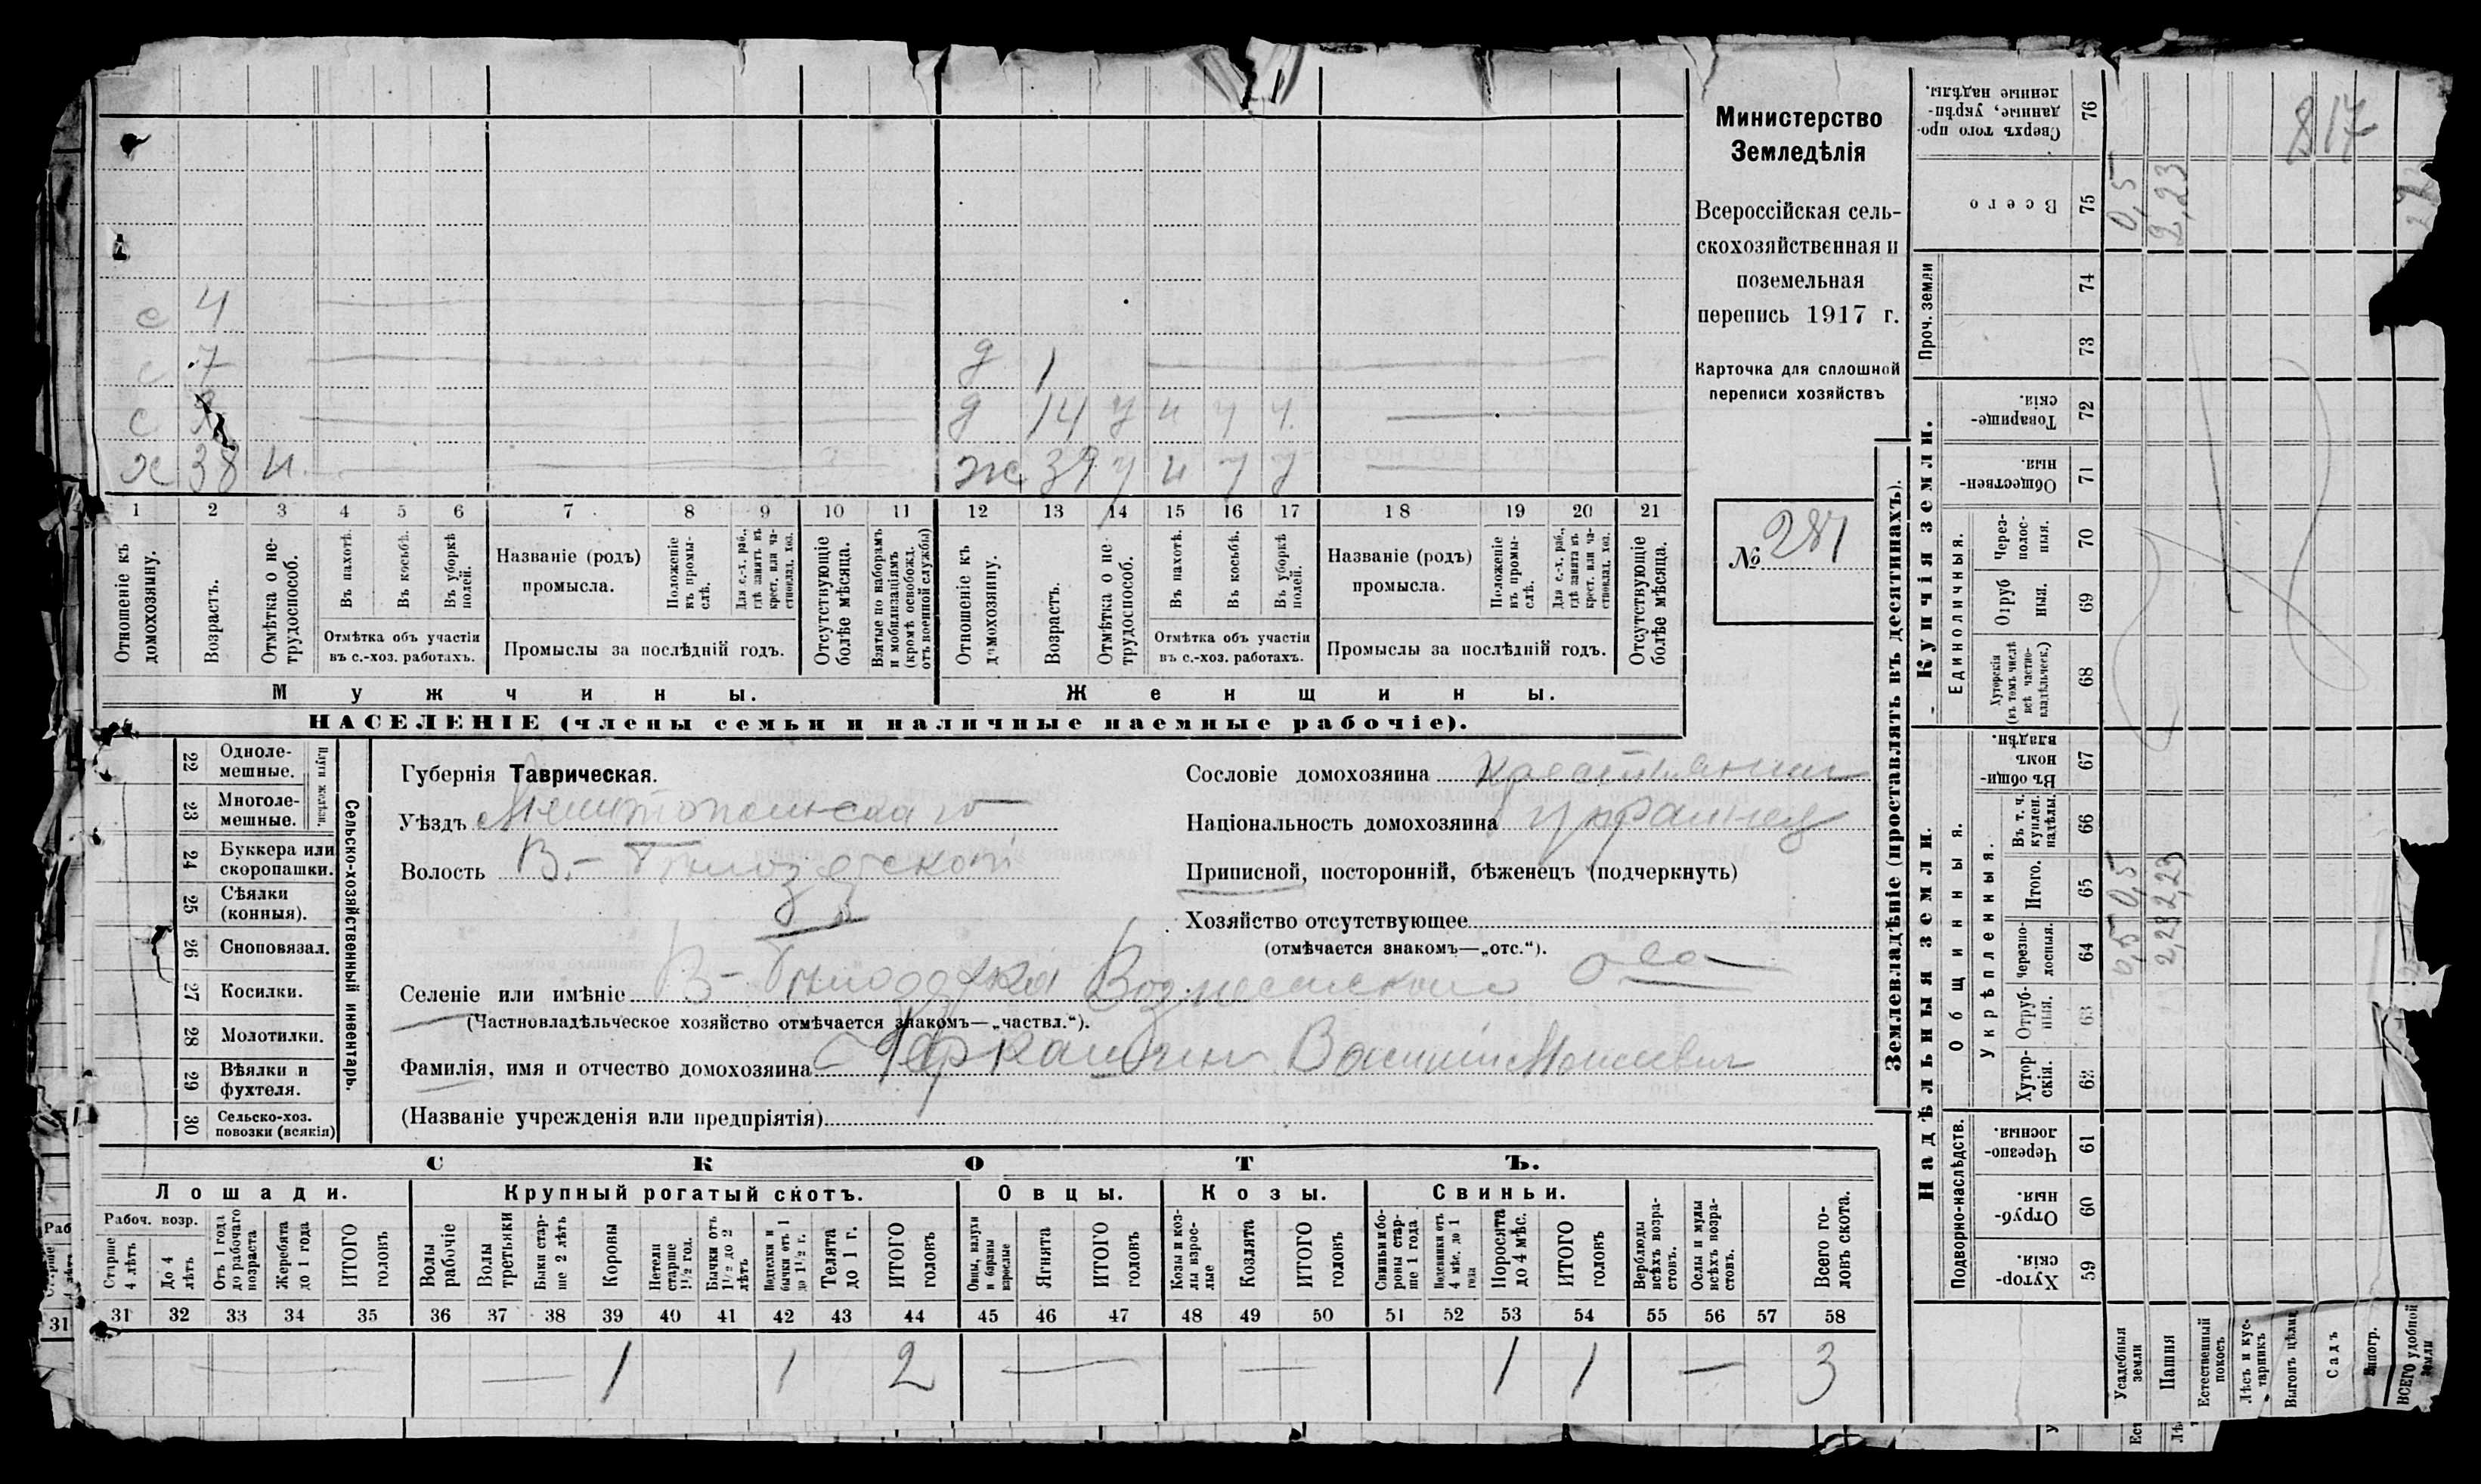 с 4
с 7
д 1
с
д 14 у ч у ч.
х 38 и.
ж 39 у ч у у
1 2 3 4 5 6 7 8 9 10 11 12 13 14 15 16 17 18 19 20 21
Отношеніе къ домохозяину.
Возрастъ.
Отмѣтка о не-трудоспособ.
Въ пахотѣ.
Въ косьбѣ.
Въ уборкѣ полей.
Отмѣтка объ участіи
въ с.-хоз. работахъ.
Названіе (родъ)
промысла.
Положеніе въ промы-слѣ.
Для с.-х. раб., гдѣ занятъ въ крест. или ча-стновлад. хоз.
Промыслы за послѣдній годъ.
Отсутствующіе болѣе мѣсяца.
Взятые по наборамъ и мобилизаціямъ (кромѣ освобожд. отъ военной службы)
Отношеніе къ домохозяину.
Возрастъ.
Отмѣтка о не-трудоспособ.
Въ пахотѣ.
Въ косьбѣ.
Въ уборкѣ полей.
Отмѣтка объ участіи
въ с.-хоз. работахъ.
Названіе (родъ)
промысла.
Положеніе въ промы-слѣ.
Для с.-х. раб., гдѣ занята въ крест. или ча-стновлад. хоз.
Промыслы за послѣдній годъ.
Отсутствующіе болѣе мѣсяца.
Мужчины.
Женщины.
НАСЕЛЕНІЕ (члены семьи и наличные наемные рабочіе).
Министерство
Земледѣлія
Всероссійская сель-
скохозяйственная и
поземельная
перепись 1917 г.
Карточка для сплошной
переписи хозяйствъ
№ 287
22 Одноле-
мешные.
23 Многоле-
мешные.
Плуги желѣзн.
24 Буккера или
скоропашки.
25 Сѣялки
(конныя).
26 Сноповязал.
27 Косилки.
28 Молотилки.
29 Вѣялки и
фухтеля.
30 Сельско-хоз.
повозки (всякія)
Сельско-хозяйственный инвентарь.
Губернія Таврическая.
Уѣздъ Мелитопольскаго
Волость В.-Тнлоздской
Селеніе или имѣніе В-
(Частновладѣльческое хозяйство отмѣчается знакомъ—„частвл.“).
Фамилія, имя и отчество домохозяина Василій Моисеевич
(Названіе учрежденія или предпріятія)
Сословіе домохозяина крестьянин
Національность домохозяина украинец
Приписной, посторонній, бѣженецъ (подчеркнуть)
Хозяйство отсутствующее
(отмѣчается знакомъ—„отс.“).
СКОТЪ.
Лошади.
Крупный рогатый скотъ.
Овцы.
Козы.
Свиньи.
Рабоч. возр.
Старше 4 лѣтъ
До 4 лѣтъ
Отъ 1 года до рабочаго возраста
Жеребята до 1 года
ИТОГО головъ
Волы рабочіе
Волы третьяки
Быки стар-ше 2 лѣтъ
Коровы
Нетели старше 1½ год.
Бычки отъ 1½ до 2 лѣтъ
Подтелки и бычки отъ 1 до 1½ г.
Телята до 1 г.
ИТОГО головъ
Овцы, валухи и бараны взрослые
Ягнята
ИТОГО головъ
Козы и коз-лы взрос-лые
Козлята
ИТОГО головъ
Свиньи и бо-ровы стар-ше 1 года
Подсвинки отъ 4 мѣс. до 1 года
Поросята до 4 мѣс.
ИТОГО головъ
Верблюды всѣхъ возра-стовъ.
Ослы и мулы всѣхъ возра-стовъ.
Всего го-ловъ скота.
31 32 33 34 35 36 37 38 39 40 41 42 43 44 45 46 47 48 49 50 51 52 53 54 55 56 57 58
1 1 2 1 1 3
Землевладѣніе (проставлять въ десятинахъ).
Купчія земли.
Надѣльныя земли.
Сверхъ того про-данные, укрѣп-ленные надѣлы. 76
Всего 75 0,5 2,23
Проч. земли 74 73
Товарище-скія. 72
Обществен-ныя. 71
Единоличныя.
Через-полос-ныя. 70
Отруб ныя. 69
Хуторскія (въ томъ числѣ всѣ частно-владѣльчес.) 68
Общинныя.
Въ общи-номъ владѣн. 67
Укрѣпленныя.
Въ т. ч. куплен. надѣлы. 66
Итого. 65 0,5 2,23
Черезпо-лосныя. 64 0,5 2,23
Отруб-ныя. 63
Хутор-скія. 62
Подворно-наслѣдств.
Черезпо-лосныя. 61
Отруб-ныя. 60
Хутор-скія. 59
Усадебныя земли
Пашня
Естественный покосъ
Лѣсъ и кус-тарникъ
Выгонъ цѣлин.
Садъ
Виногр.
ВСЕГО удобной земли
817
Раб
31